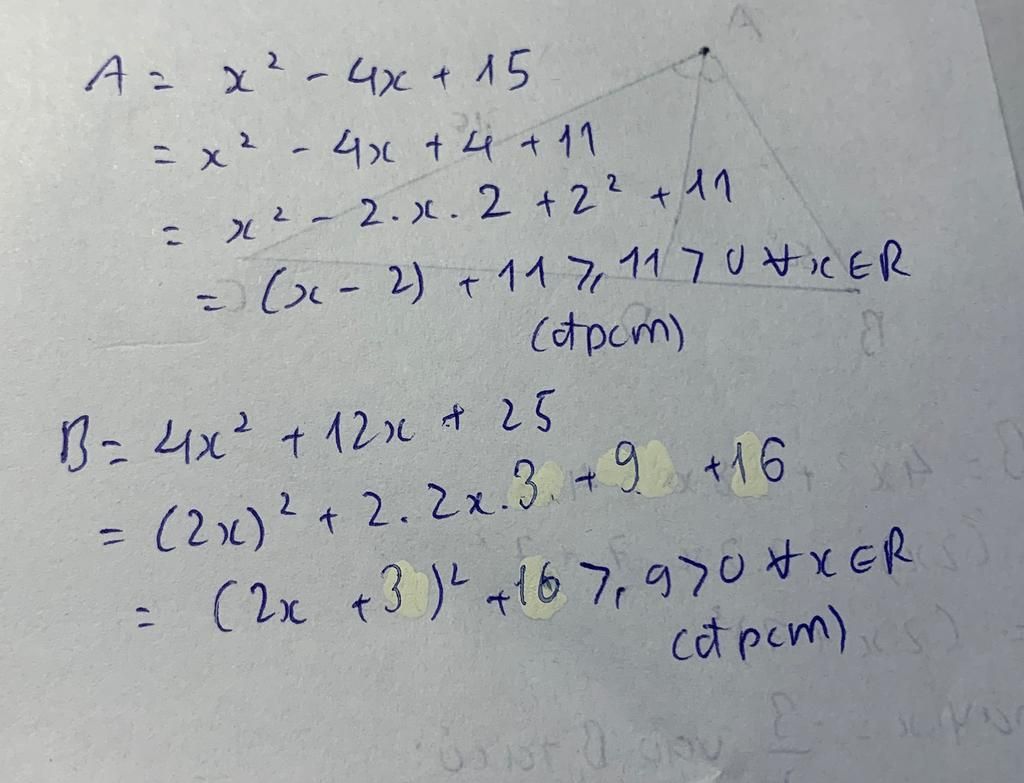 A = x² - 4x + 15
= x² - 4x + 4 + 11
= x² - 2.x.2 + 2² + 11
= (x - 2) + 11 ⩾ 11 > 0 ∀x ∈ R
(đpcm)
B = 4x² + 12x + 25
= (2x)² + 2.2x.3 + 9 + 16
= (2x + 3)² + 16 ⩾ 9 > 0 ∀x ∈ R
(đpcm)